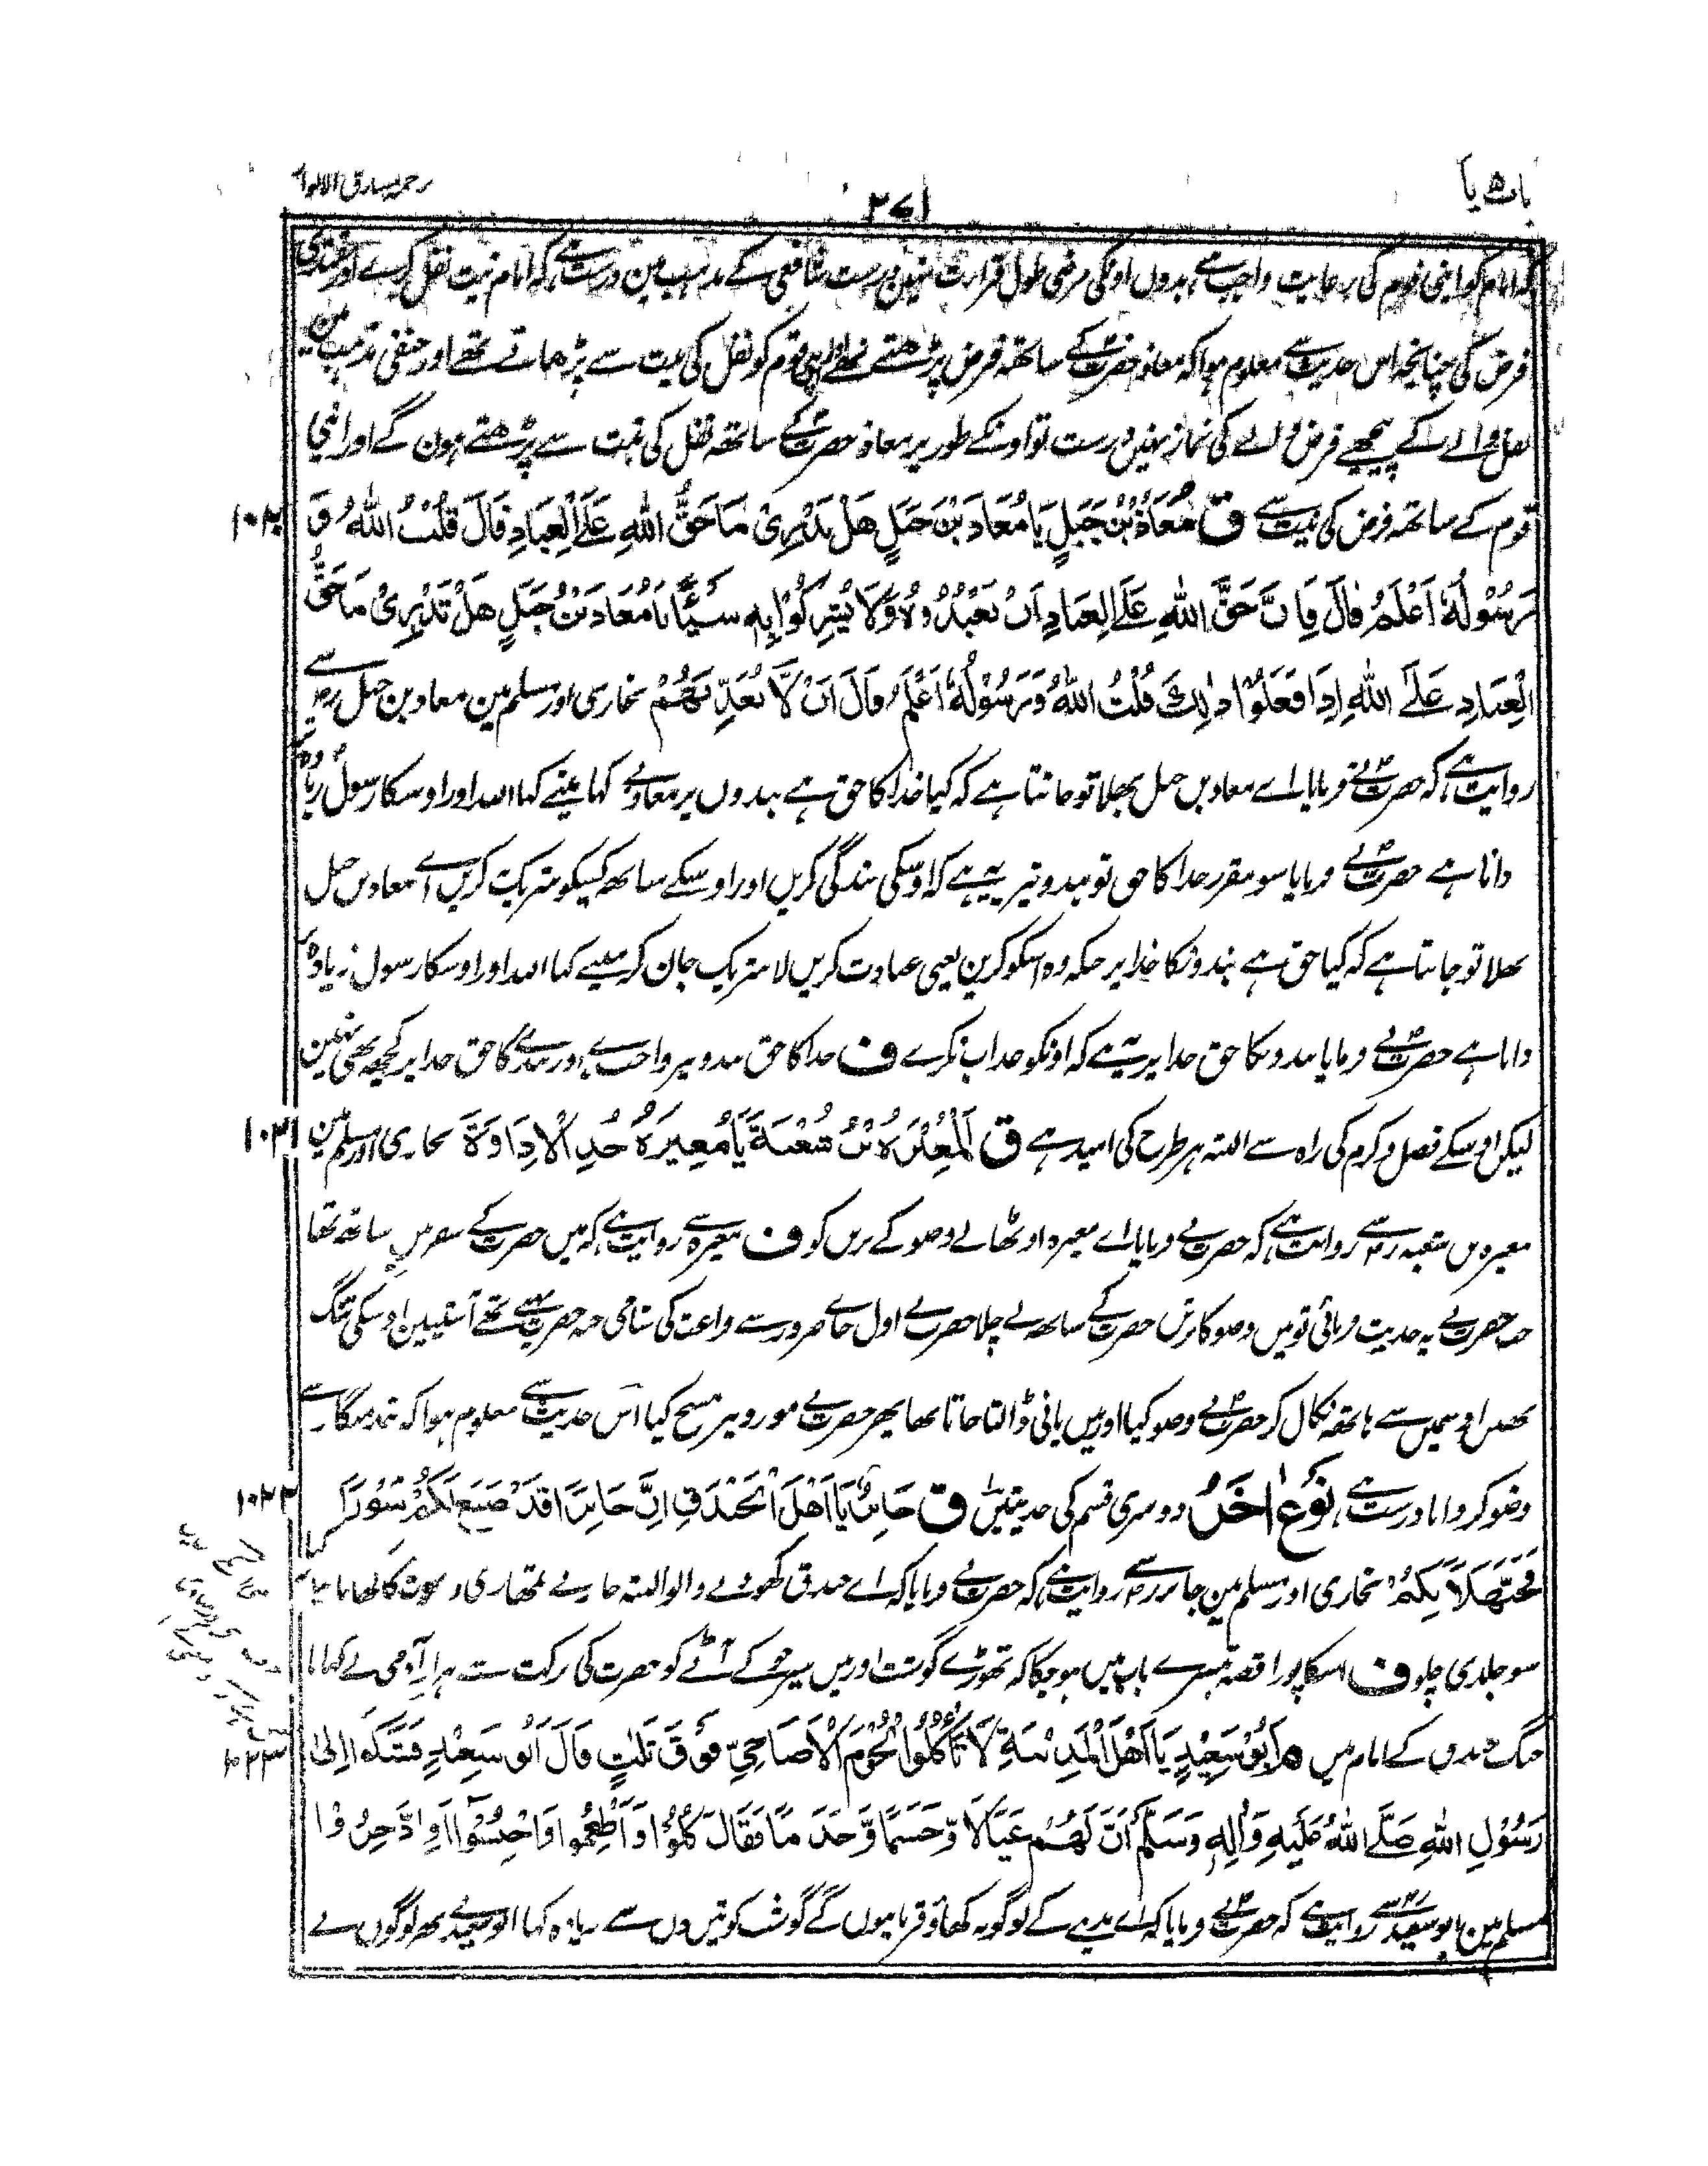 باب یا
۳۷۱
کہ امام کو اپنی قوم کی رعایت واجب ہے بدوں اونکی مرضی طول قرارت نہین درست شافعی کے مذہب مین درست ہے کہ امام نیت نفل کرے اور مقتدی
فرض کی چنانچہ اس حدیث سے معلوم ہوا کہ معاذ حضرت کے ساتھ فرض پڑھتے تھے اور اپنی قوم کو نفل کی نیت سے پڑھاتے تھے اور حنفی مذہب مین
نفل والے کے پیچھے فرض والے کی نماز نہیں درست تو اونکے طور پر معاذ حضرت کے ساتھ نفل کی نیت سے پڑھتے ہون گے اور اپنی
قوم کے ساتھ فرض کی نیت سے ق مُعَاذُ بْنُ جَبَلٍ یَا مُعَاذَ بْنَ جَبَلٍ هَلْ تَدْرِیْ مَا حَقُّ اللّٰهِ عَلَی الْعِبَادِ قَالَ قُلْتُ اللّٰهُ وَ
رَسُوْلُهٗ اَعْلَمُ قَالَ فَاِنَّ حَقَّ اللّٰهِ عَلَی الْعِبَادِ اَنْ یَعْبُدُوْهُ وَلَا یُشْرِكُوْا بِهٖ شَیْئًا یَا مُعَاذَ بْنَ جَبَلٍ هَلْ تَدْرِیْ مَا حَقُّ
الْعِبَادِ عَلَی اللّٰهِ اِذَا فَعَلُوْا ذٰلِكَ قُلْتُ اللّٰهُ وَرَسُوْلُهٗ اَعْلَمُ قَالَ اَنْ لَّا یُعَذِّبَهُمْ بخاری اور مسلم مین معاذ بن جبل رض سے
روایت ہے کہ حضرت نے فرمایا اے معاذ بن جبل بھلا تو جانتا ہے کہ کیا خدا کا حق ہے بندوں پر معاذ نے کہا مینے کہا اللہ اور اوسکا رسول زیادہ
دانا ہے حضرت نے فرمایا سو مقرر خدا کا حق تو بندونپر یہ ہے کہ اوسکی بندگی کریں اور اوسکے ساتھ کسیکو شریک نکریں اے معاذ بن جبل
بھلا تو جانتا ہے کہ کیا حق ہے بندونکا خدا پر جبکہ وہ اسکو کرین یعنی عبادت کریں لا شریک جان کر مینے کہا اللہ اور اوسکا رسول زیادہ
دانا ہے حضرت نے فرمایا بندونکا حق خدا پر یہ ہے کہ اونکو عذاب نکرے ف خدا کا حق بندونپر واجب ہے اور بندے کا حق خدا پر کچھ بھی نہین
لیکن اوسکے فضل و کرم کی راہ سے البتہ ہر طرح کی امید ہے ق اَلْمُغِیْرَةُ بْنُ شُعْبَةَ یَا مُغِیْرَةُ خُذِ الْاِدَاوَةَ بخاری اور مسلم مین
مغیرہ بن شعبہ رض سے روایت ہے کہ حضرت نے فرمایا اے مغیرہ اوٹھالے وضو کے برتن کو ف مغیرہ سے روایت ہے کہ میں حضرت کے سفر میں ساتھ تھا
جب حضرت نے یہ حدیث فرمائی تو میں وضو کا برتن حضرت کے ساتھ لے چلا حضرت نے اول جائے ضرور سے فراغت کی شامی جبہ حضرت پہنے تھے آستینین اوسکی تنگ
تھیں اوسمیں سے ہاتھ نکال کر حضرت نے وضو کیا اور میں پانی ڈالتا جاتا تھا پھر حضرت نے موزونپر مسح کیا اس حدیث سے معلوم ہوا کہ خدمتگار سے
وضو کروانا درست ہے نَوْعٌ اٰخَرُ دوسری قسم کی حدیثیں ق جَابِرٌ یَا اَهْلَ الْخَنْدَقِ اِنَّ جَابِرًا قَدْ صَنَعَ لَكُمْ سُوْرًا
فَحَیَّهَلًا بِكُمْ بخاری اور مسلم مین جابر رض سے روایت ہے کہ حضرت نے فرمایا کہ اے خندق کھودنے والو البتہ جابر نے تمھاری دعوت کا کھانا تیار کیا
سو جلدی چلو ف اسکا پورا قصہ تیسرے باب میں ہو چکا کہ تھوڑے گوشت اور تین سیر جو کے آٹے کو حضرت کی برکت سے ہزار آدمی نے کھایا
جنگ خندق کے ایام میں م اَبُوْ سَعِیْدٍ یَا اَهْلَ الْمَدِیْنَةِ لَا تَأْكُلُوْا لُحُوْمَ الْاَضَاحِیِّ فَوْقَ ثَلٰثٍ قَالَ اَبُوْ سَعِیْدٍ فَشَكَوْا اِلٰی
رَسُوْلِ اللّٰهِ صَلَّی اللّٰهُ عَلَیْهِ وَاٰلِهٖ وَسَلَّمَ اَنَّ لَهُمْ عَیَالًا وَّحَشَمًا وَّخَدَمًا فَقَالَ كُلُوْا وَاَطْعِمُوا وَاحْبِسُوْا اَوِادَّخِرُوْا
مسلم مین ابو سعید رض سے روایت ہے کہ حضرت نے فرمایا کہ اے مدینے کے لوگو نہ کھاؤ قربانیوں کے گوشت کو تین دن سے زیادہ کہا ابو سعید نے پھر لوگوں نے
۱۰۳۱